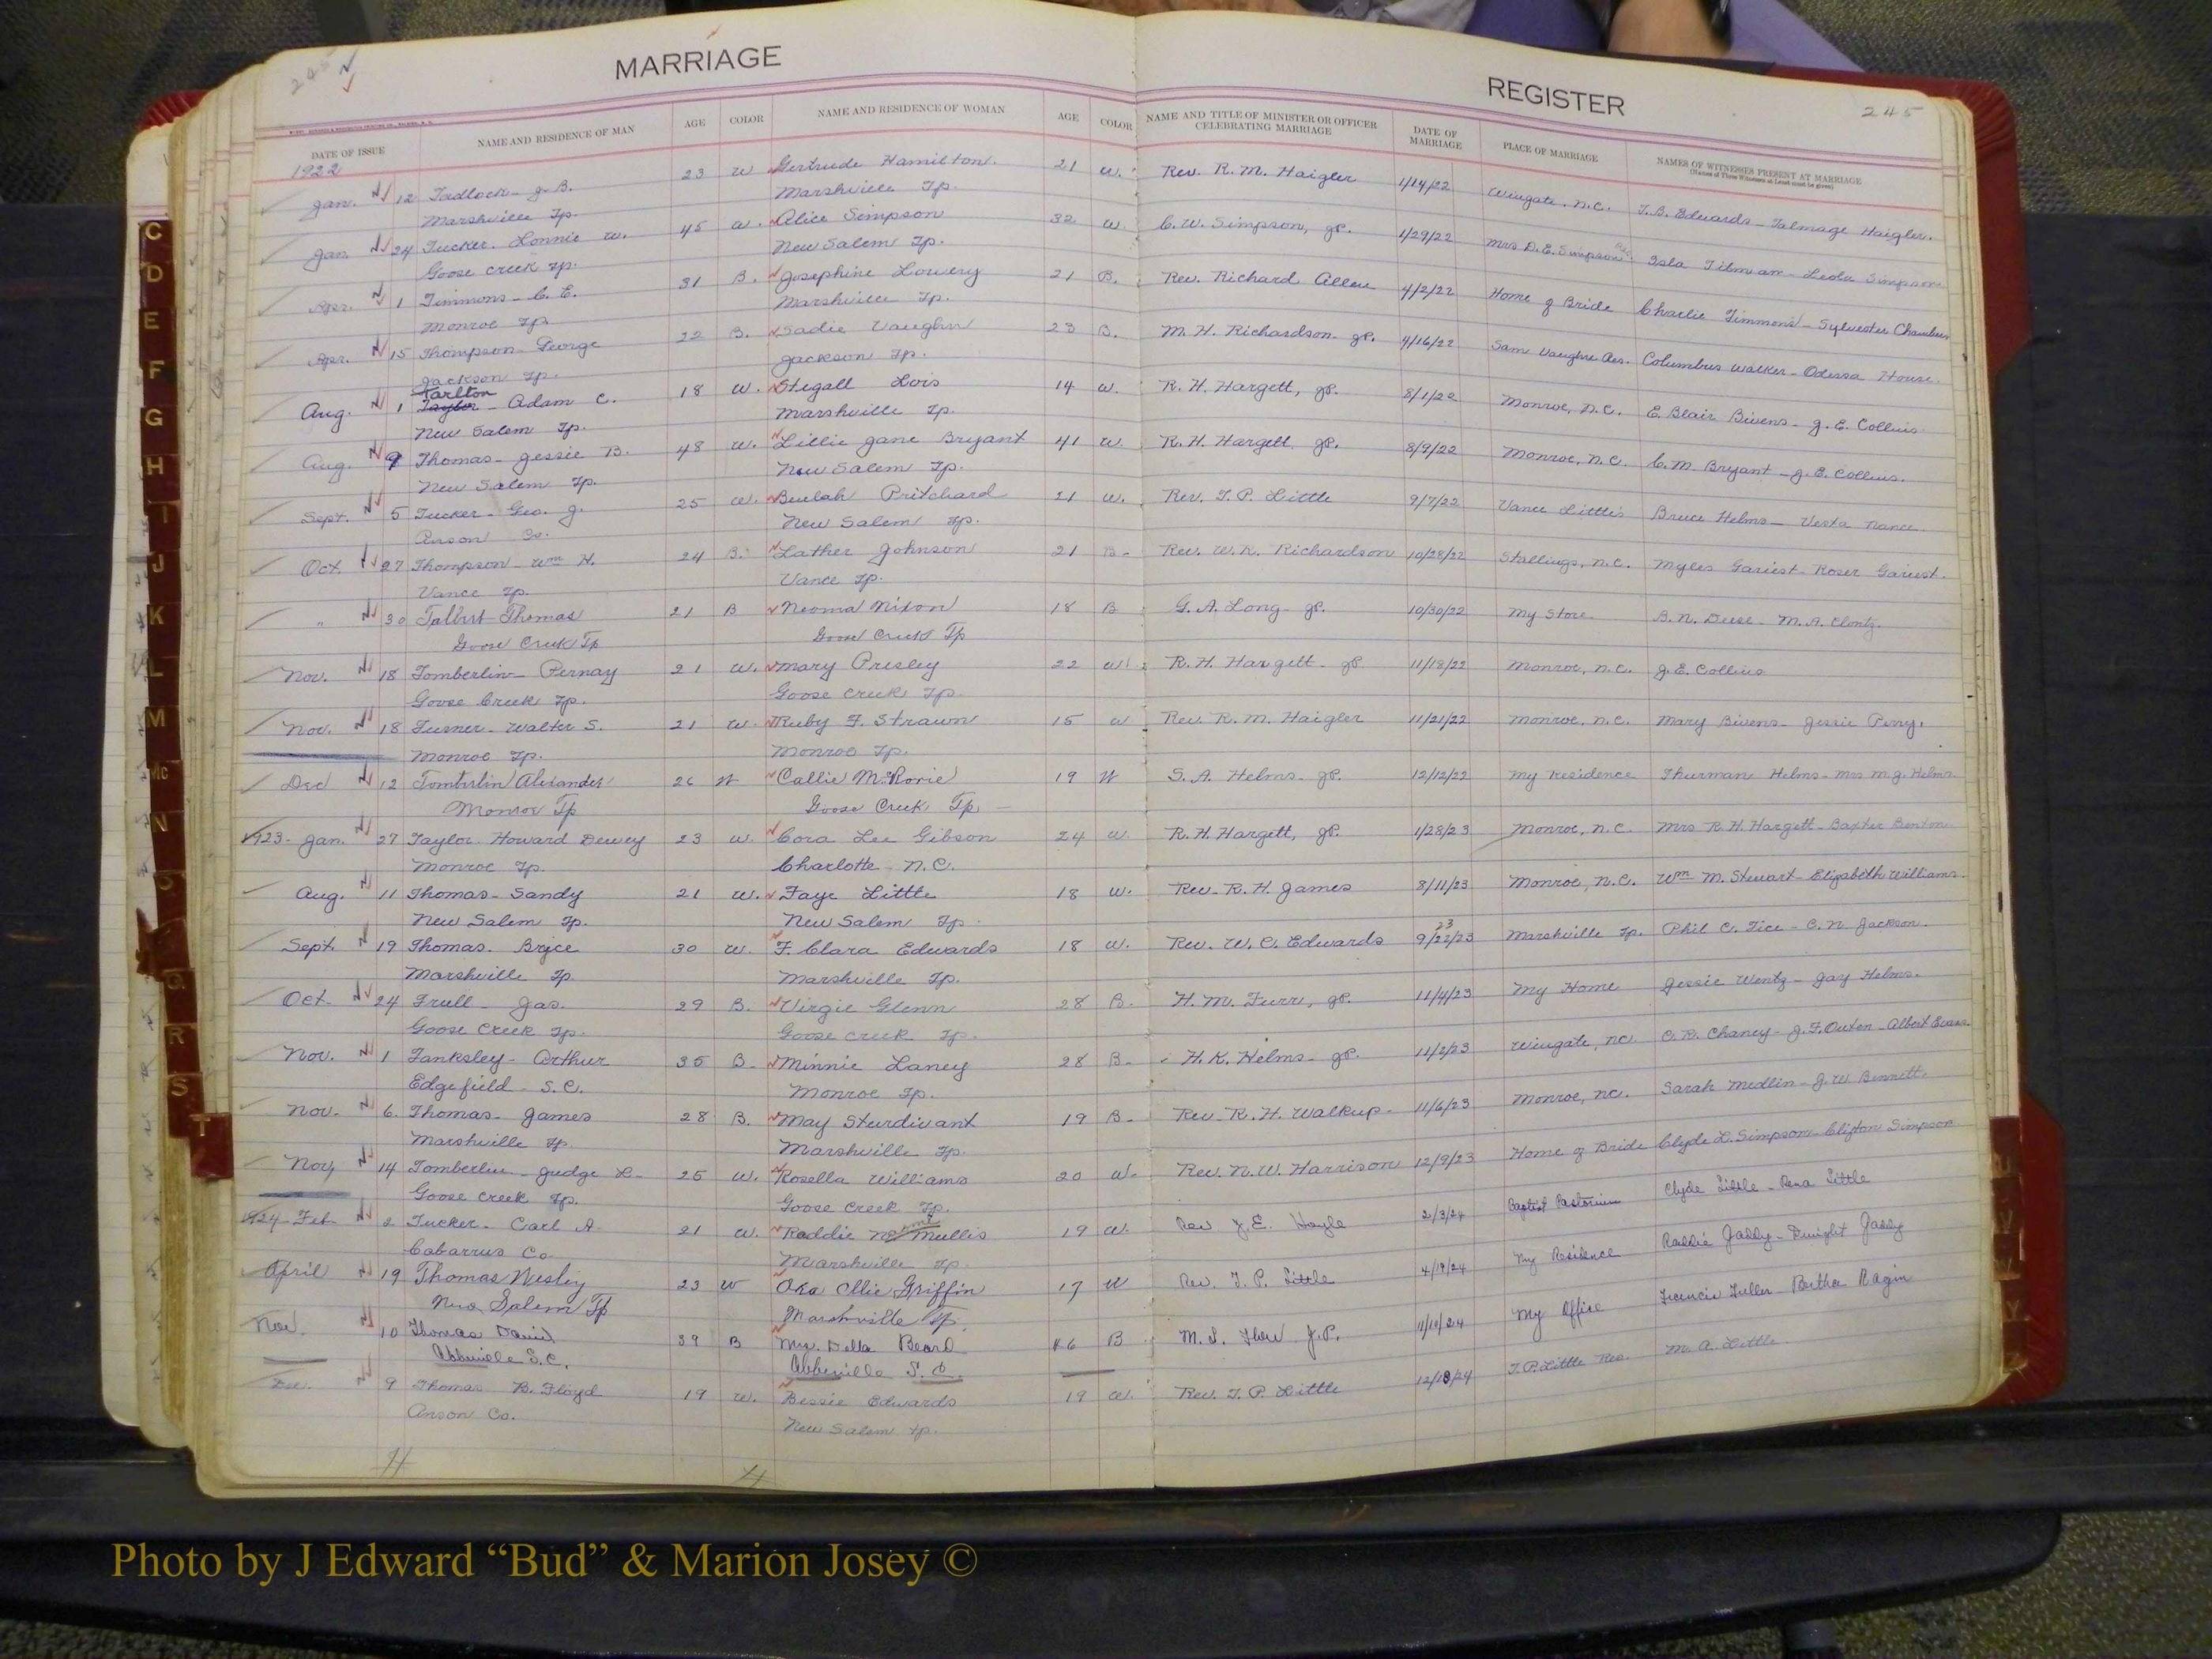 MARRIAGE
REGISTER
245
DATE OF ISSUE NAME AND RESIDENCE OF MAN AGE COLOR NAME AND RESIDENCE OF WOMAN AGE COLOR NAME AND TITLE OF MINISTER OR OFFICER CELEBRATING MARRIAGE DATE OF MARRIAGE PLACE OF MARRIAGE NAMES OF WITNESSES PRESENT AT MARRIAGE
(Names of Three Witnesses at Least must be given)
1922
Jan. 12 Tadlock - J. B. 23 W Gertrude Hamilton. 21 W. Rev. R. M. Haigler 1/14/22 Wingate, N.C. T. B. Edwards - Talmage Haigler.
Marshville Tp. Marshville Tp.
Jan 24 Tucker. Lonnie W. 45 W. Alice Simpson 32 W C. W. Simpson, JP. 1/29/22 Mrs D. E. Simpson Isla Tilman - Leola Simpson
Goose Creek Tp. New Salem Tp.
Apr. 1 Timmons - C. E. 31 B. Josephine Lowery 21 B. Rev. Richard Allen 4/2/22 Home of Bride Charlie Timmons - Sylvester Chambers
Monroe Tp. Marshville Tp.
Apr. 15 Thompson - George 22 B. Sadie Vaughn 23 B. M. H. Richardson - JP. 4/16/22 Sam Vaughn Res. Columbus Walker - Odessa House.
Jackson Tp. Jackson Tp.
Tarlton
Aug. 1 Taylor - Adam C. 18 W. Stegall Lois 14 W. R. H. Hargett, JP. 8/1/22 Monroe, N.C. E. Blair Bivens - J. E. Collins.
New Salem Tp. Marshville Tp.
Aug. 9 Thomas - Jessie B. 48 W. Lillie Jane Bryant 41 W. R. H. Hargett, JP. 8/9/22 Monroe, N.C. C. M. Bryant - J. E. Collins.
New Salem Tp. New Salem Tp.
Sept. 5 Tucker - Geo. J. 25 W. Beulah Pritchard 21 W. Rev. T. P. Little 9/7/22 Vance Little's Bruce Helms - Vesta Nance.
Anson Co. New Salem Tp.
Oct. 27 Thompson - Wm H. 24 B. Lather Johnson 21 B - Rev. W. R. Richardson 10/28/22 Stallings, N.C. Myles Gariest - Roser Gariest.
Vance Tp. Vance Tp.
" 30 Talbert Thomas 21 B Neoma Nixon 18 B G. A. Long - JP. 10/30/22 My Store. B. N. Deese - M. A. Clontz.
Goose Creek Tp Goose Creek Tp
Nov. 18 Tomberlin - Pernay 21 W. Mary Presley 22 W R. H. Hargett - JP 11/18/22 Monroe, N.C. J. E. Collins
Goose Creek Tp. Goose Creek Tp.
Nov. 18 Turner - Walter S. 21 W. Ruby F. Strawn 15 W Rev. R. M. Haigler 11/21/22 Monroe, N.C. Mary Bivens - Jessie Perry.
Monroe Tp. Monroe Tp.
Dec 12 Tomberlin Alexander 26 W Callie McRorie 19 W S. A. Helms - JP. 12/12/22 My Residence Thurman Helms - Mrs M. J. Helms
Monroe Tp Goose Creek Tp -
1923 - Jan. 27 Taylor - Howard Dewey 23 W. Cora Lee Gibson 24 W. R. H. Hargett, JP. 1/28/23 Monroe, N.C. Mrs R. H. Hargett - Baxter Benton
Monroe Tp. Charlotte N.C.
Aug. 11 Thomas - Sandy 21 W. Faye Little 18 W. Rev - R. H. James 8/11/23 Monroe, N.C. Wm M. Stewart - Elizabeth Williams.
New Salem Tp. New Salem Tp.
23
Sept 19 Thomas. Bryce 30 W. F. Clara Edwards 18 W. Rev. W. C. Edwards 9/22/23 Marshville Tp. Phil C. Tice - C. N. Jackson.
Marshville Tp. Marshville Tp.
Oct. 24 Trull - Jas. 29 B. Virgie Glenn 28 B. H. M. Furr, JP. 11/4/23 My Home Jessie Wentz - Jay Helms.
Goose Creek Tp. Goose Creek Tp.
Nov. 1 Tanksley - Arthur 35 B. Minnie Laney 28 B - H. K. Helms - JP. 11/2/23 Wingate, NC. C. R. Chaney - J. F. Outen - Albert Evans
Edgefield - S.C. Monroe Tp.
Nov. 6. Thomas - James 28 B. May Sturdivant 19 B - Rev - R. H. Walkup - 11/6/23 Monroe, NC. Sarah Medlin - J. W. Bennett.
Marshville Tp. Marshville Tp.
Nov 14 Tomberlin - Judge L - 25 W. Rosella Williams 20 W - Rev. N. W. Harrison 12/9/23 Home of Bride Clyde L. Simpson - Clifton Simpson
Goose Creek Tp. Goose Creek Tp.
1924 - Feb 2 Tucker - Carl A. 21 W. Raddie Mullis 19 W. Rev J. E. Hoyle 2/3/24 Baptist Pastorium Clyde Little - Rena Little
Cabarrus Co. Marshville Tp.
April 19 Thomas Wesley 23 W Oka Ollie Griffin 17 W Rev. T. P. Little 4/19/24 My Residence Raddie Gaddy - Dwight Gaddy
New Salem Tp Marshville Tp.
Nov. 10 Thomas David 39 B Mrs. Della Beard 46 B M. L. Flow J.P. 11/10/24 My Office Francis Fuller - Bertha Ragin
Abbeville S.C. Abbeville S.C.
Dec. 9 Thomas B. Floyd 19 W. Bessie Edwards 19 W. Rev. T. P. Little 12/18/24 T. P. Little Res. M. A. Little
Anson Co. New Salem Tp.
11
11
C
D
E
F
G
H
I
J
K
L
M
Mc
N
O
Q
R
S
T
U
V
W
Y
Photo by J Edward “Bud” & Marion Josey ©